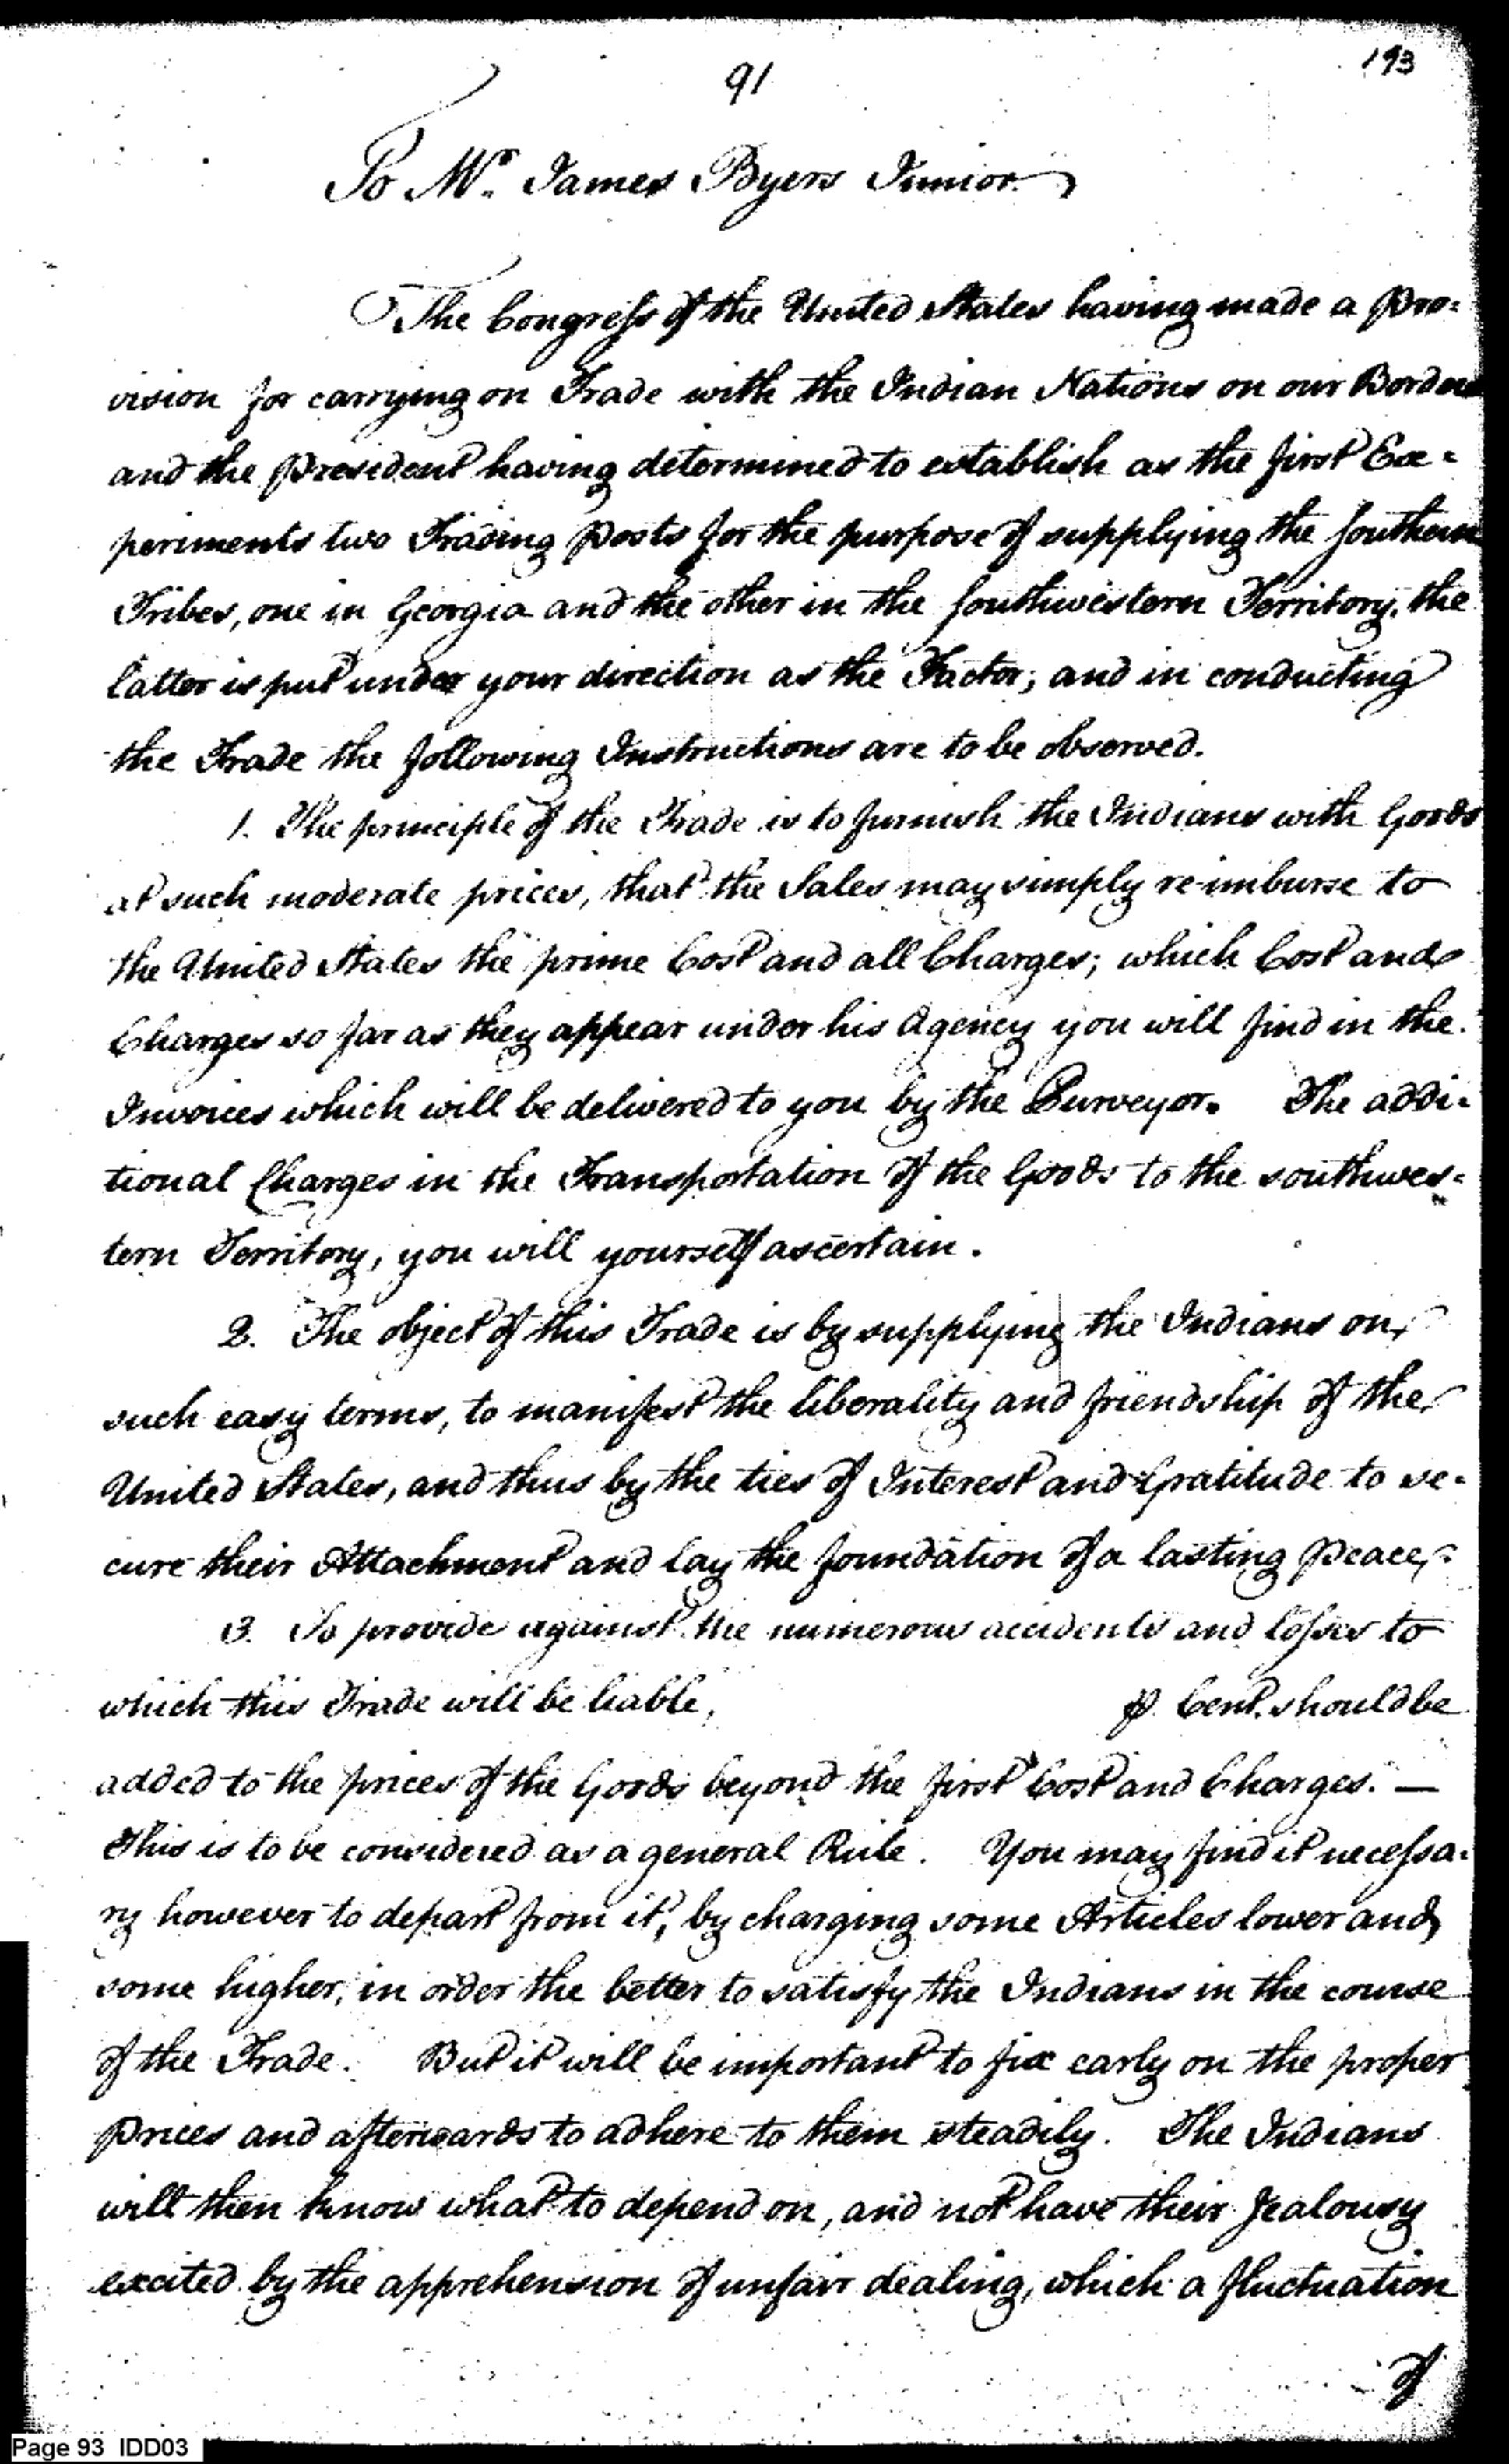 193
91
To Mr. James Byers Junior.
The Congress of the United States having made a pro=
vision for carrying on Trade with the Indian Nations on our Borders
and the President having determined to establish as the first Ex=
periments two Trading posts for the purpose of supplying the southern
Tribes, one in Georgia and the other in the southwestern Territory, the
latter is put under your direction as the Factor; and in conducting
the Trade the following Instructions are to be observed.
1. The principle of the Trade is to furnish the Indians with Goods
at such moderate prices, that the Sales may simply re-imburse to
the United States the prime Cost and all Charges; which Cost and
Charges so far as they appear under his Agency you will find in the
Invoices which will be delivered to you by the Purveyor. The addi=
tional Charges in the Transportation of the Goods to the southwes=
tern Territory, you will yourself ascertain.
2. The object of this Trade is by supplying the Indians on
such easy terms, to manifest the liberality and friendship of the
United States, and thus by the ties of Interest and Gratitude to se=
cure their Attachment and lay the foundation of a lasting peace.
3. To provide against the numerous accidents and losses to
which this Trade will be liable, ⅌ Cent. should be
added to the prices of the Goods beyond the first Cost and Charges. —
This is to be considered as a general Rule. You may find it necessa=
ry however to depart from it, by charging some Articles lower and
some higher, in order the better to satisfy the Indians in the course
of the Trade. But it will be important to fix early on the proper
prices and afterwards to adhere to them steadily. The Indians
will then know what to depend on, and not have their Jealousy
excited by the apprehension of unfair dealing, which a fluctuation
of
Page 93 IDD03